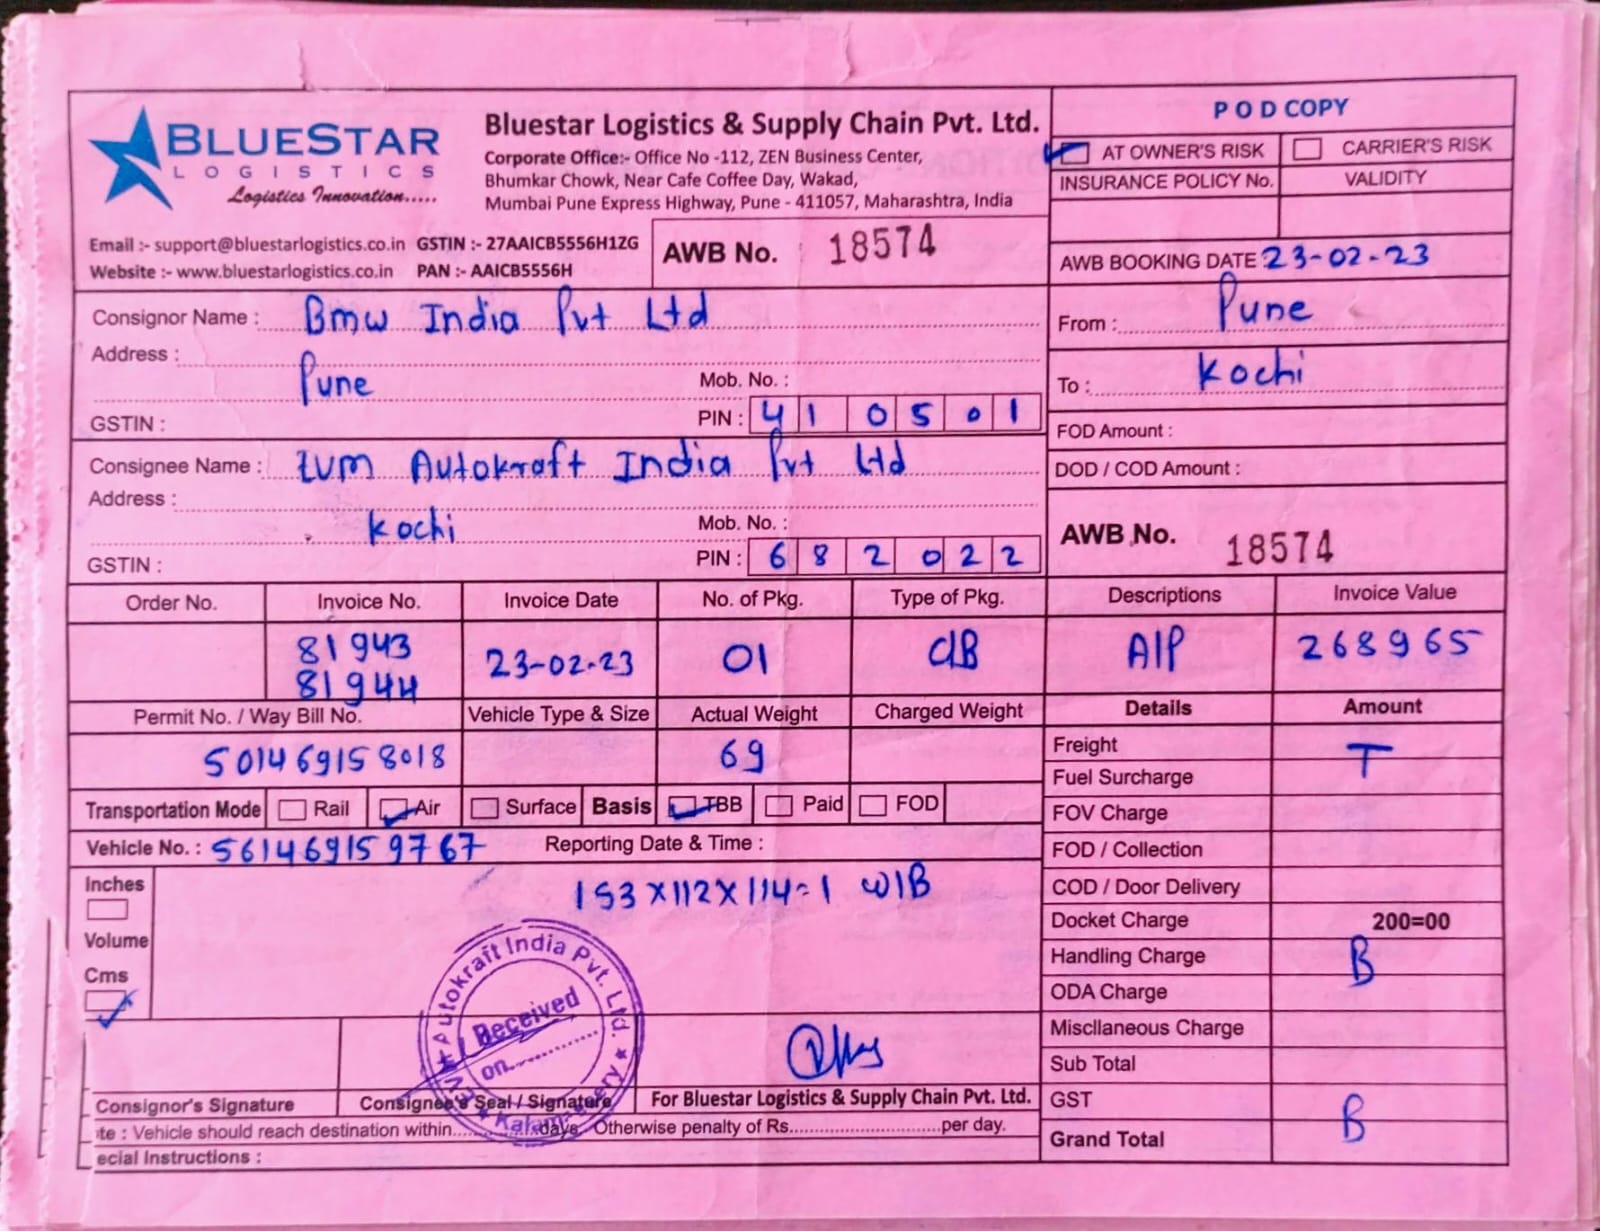 BLUESTAR
LOGISTICS
Logistics Innovation.....
Bluestar Logistics & Supply Chain Pvt. Ltd.
Corporate Office:- Office No -112, ZEN Business Center,
Bhumkar Chowk, Near Cafe Coffee Day, Wakad,
Mumbai Pune Express Highway, Pune - 411057, Maharashtra, India
Email :- support@bluestarlogistics.co.in GSTIN :- 27AAICB5556H1ZG
Website :- www.bluestarlogistics.co.in PAN :- AAICB5556H
AWB No. 18574
POD COPY
AT OWNER'S RISK CARRIER'S RISK
INSURANCE POLICY No. VALIDITY
AWB BOOKING DATE 23-02-23
Consignor Name : Bmw India Pvt Ltd
Address :
Pune
Mob. No. :
GSTIN :
PIN : 410501
From : Pune
To : Kochi
FOD Amount :
DOD / COD Amount :
Consignee Name : EVM Autokraft India Pvt Ltd
Address :
Kochi
Mob. No. :
GSTIN :
PIN : 682022
AWB No. 18574
Order No. Invoice No. Invoice Date No. of Pkg. Type of Pkg. Descriptions Invoice Value
81943
81944
23-02-23 01 C/B A/P 268965
Permit No. / Way Bill No. Vehicle Type & Size Actual Weight Charged Weight Details Amount
501469158018 69
Freight T
Fuel Surcharge
Transportation Mode Rail Air Surface Basis TBB Paid FOD
FOV Charge
Vehicle No. : 561469159767 Reporting Date & Time :
FOD / Collection
Inches
Volume
Cms
153x112x114=1 W/B
COD / Door Delivery
Docket Charge 200=00
Handling Charge B
ODA Charge
Miscllaneous Charge
Sub Total
GST B
Grand Total
EVM Autokraft India Pvt. Ltd.
Received
on..............
Consignor's Signature Consignee's Seal / Signature For Bluestar Logistics & Supply Chain Pvt. Ltd.
te : Vehicle should reach destination within..................days. Otherwise penalty of Rs..............................per day.
ecial Instructions :